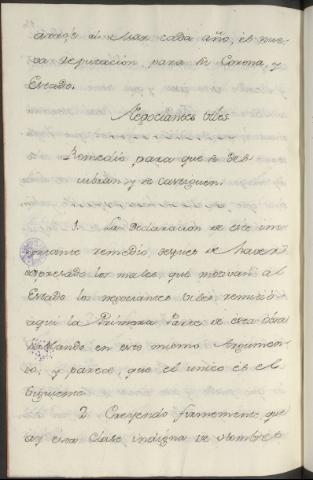 arroje al Mar cada año, es nue-
va reputación para la Corona, y
Estado.
Negociantes viles
Remedio para que se des-
cubran y se castiguen.
1. La declaración de este im-
portante remedio, después de haver
expresado los males, que motivan al
Estado los negociantes viles,
aquí la Primera Parte de esta obra
tratando en este mismo Argumen-
to, y parece, que el unico es el
siguiente.
2 Creyendo firmemente, que
ay esta clase indigna de hombres